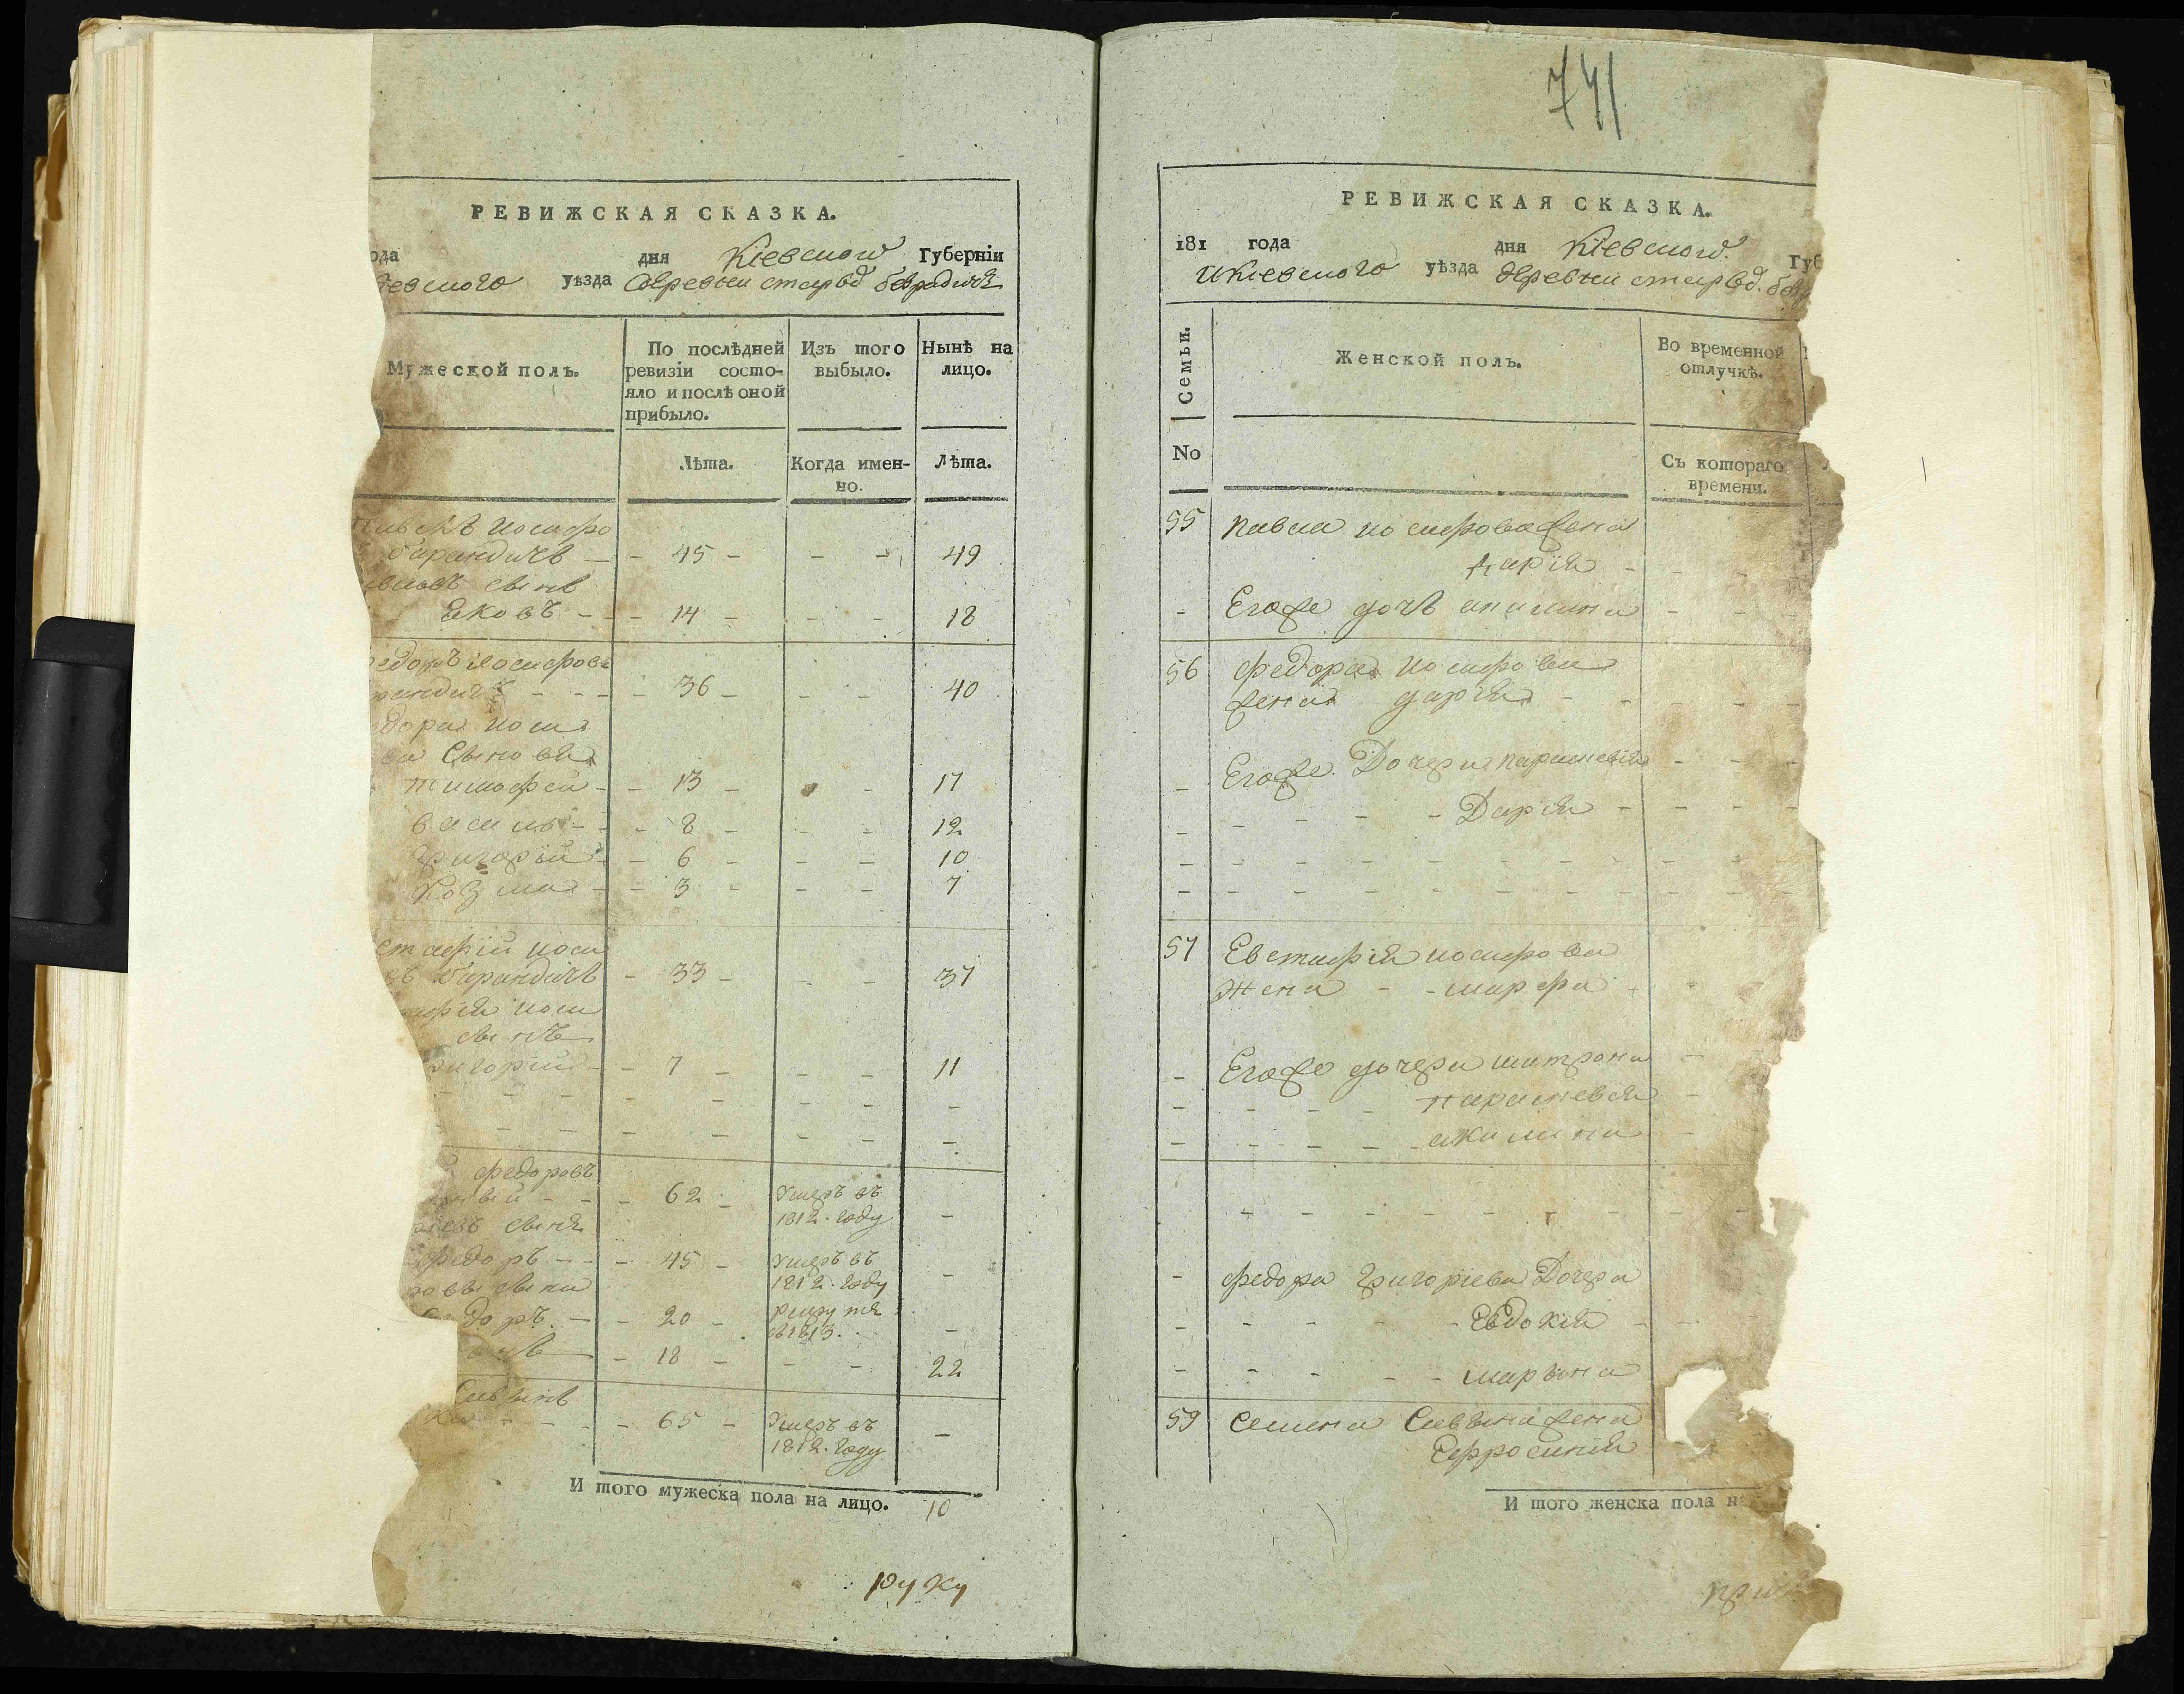 РЕВИЖСКАЯ СКАЗКА.
ода дня Кіевской Губерніи
евского уѣзда деревни старѣд
Мужеской полъ.
По послѣдней ревизіи состо-
яло и послѣ оной
прибыло.
Изъ того
выбыло.
Нынѣ на
лицо.
Лѣта.
Когда имен-
но.
Лѣта.
иосифо
- 45 - - - 49
сынъ
Яковъ - - 14 - - - 18
едоръ иосифовъ
- - - - 36 - - - 40
дора иоси
ва сыновья
тимофей - - 13 - - 17
василь - - 8 - - - 12
григорій - - 6 - - - 10
Козма - - 3 - - - 7
стафій иоси
- 33 - - - 37
афія иоси
сынъ
ригорій - - 7 - - - 11
федоровъ
- - - 62 - умеръ въ
1812. году -
сыня
федоръ - - - 45 - умеръ въ
1812. году -
ровы сыни
доръ - - 20 -
1813. -
- 18 - - - 22
Савинъ
- - - 65 - умеръ въ
1812. году -
И того мужеска пола на лицо. 10
руку
741
РЕВИЖСКАЯ СКАЗКА.
181 года дня Кіевской Губ
Икіевского уѣзда деревни старѣд.
Семьи.
Женской полъ.
Во временной
отлучкѣ.
No
Съ котораго
времени.
55 павла иосифова жена
дарія -
- Егоже дочь акилина - -
56 федора иосифова
жена дарія - -
- Егоже Дочери параскевія - - -
- - - - - Дарія - - - -
57 Евстафія иосифова
Жена - - марфа
- Егоже дочери матрона -
- - - - - параскевія -
- - - - - акилина -
- федора григоріева Дочери
- - - - - Евдокія -
- - - - - марьина
59 семена Савина жена
Ефросинія
И того женска пола н
при